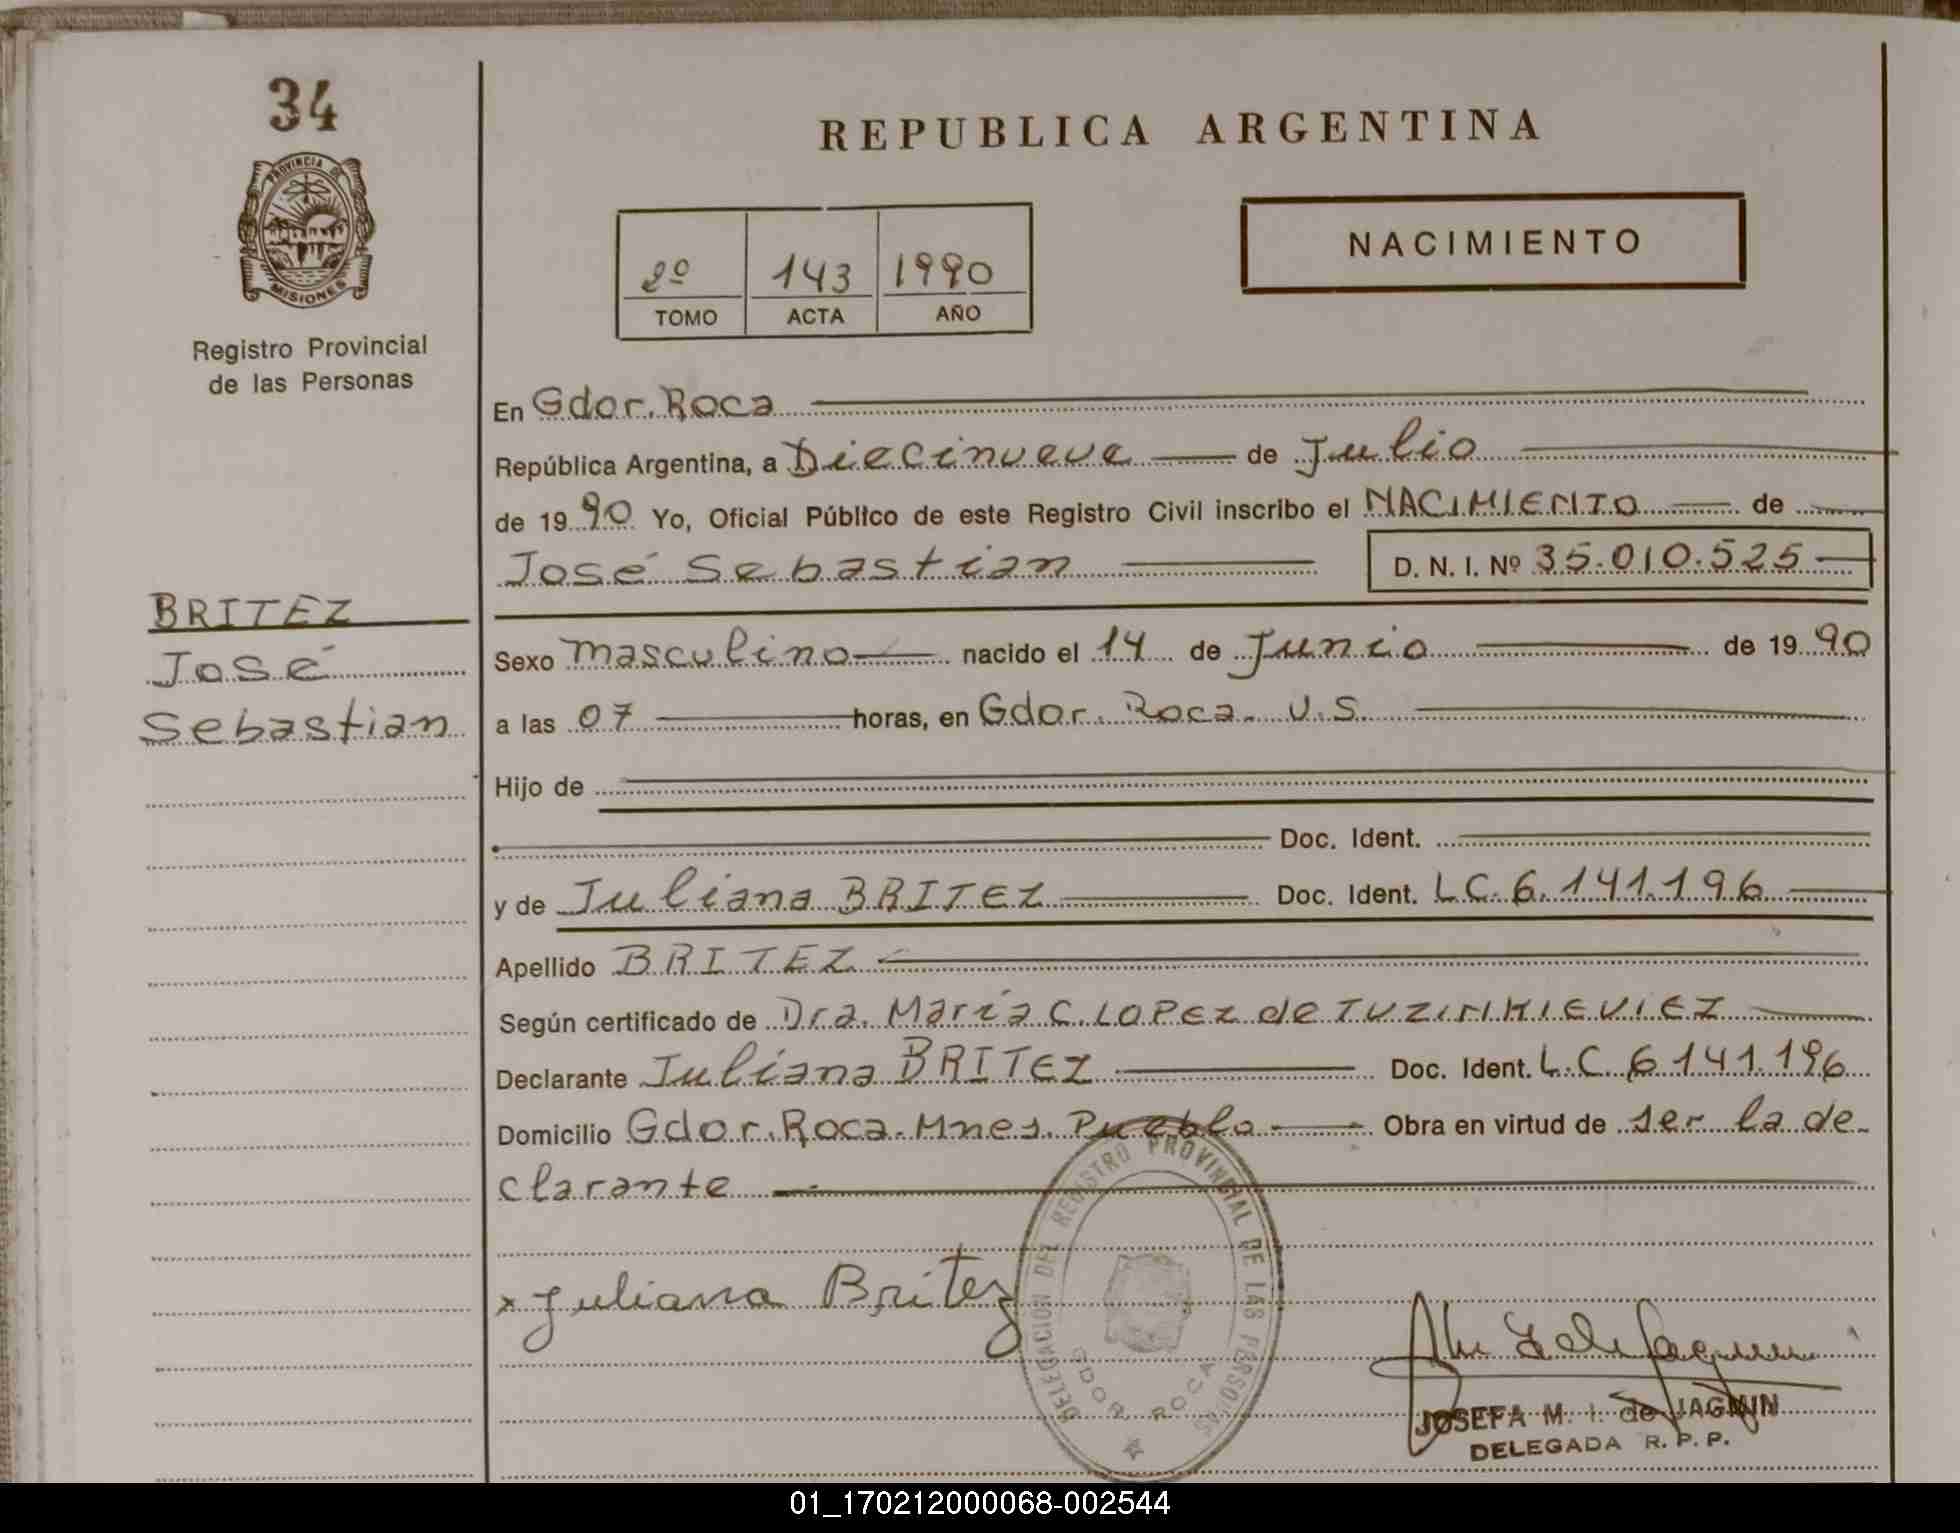 34
PROVINCIA DE
MISIONES
Registro Provincial
de las Personas
REPUBLICA ARGENTINA
2º 143 1990
TOMO ACTA AÑO
NACIMIENTO
En Gdor. Roca
República Argentina, a Diecinueve de Julio
de 1990 Yo, Oficial Público de este Registro Civil inscribo el NACIMIENTO de
José Sebastian D. N. I. Nº 35.010.525
BRITEZ
José
Sebastian
Sexo masculino nacido el 14 de Junio de 1990
a las 07 horas, en Gdor. Roca. U.S.
Hijo de
Doc. Ident.
y de Juliana BRITEZ Doc. Ident. L.C. 6.141.196
Apellido BRITEZ
Según certificado de Dra. María C. LOPEZ de TUZINKIEVIEZ
Declarante Juliana BRITEZ Doc. Ident. L.C. 6 141.196
Domicilio Gdor. Roca. Mnes. Pueblo Obra en virtud de ser la de-
clarante
x Juliana Britez
DELEGACIÓN DEL REGISTRO PROVINCIAL DE LAS PERSONAS
GDOR. ROCA
JOSEFA M. I. de JAGMIN
DELEGADA R. P. P.
01_170212000068-002544